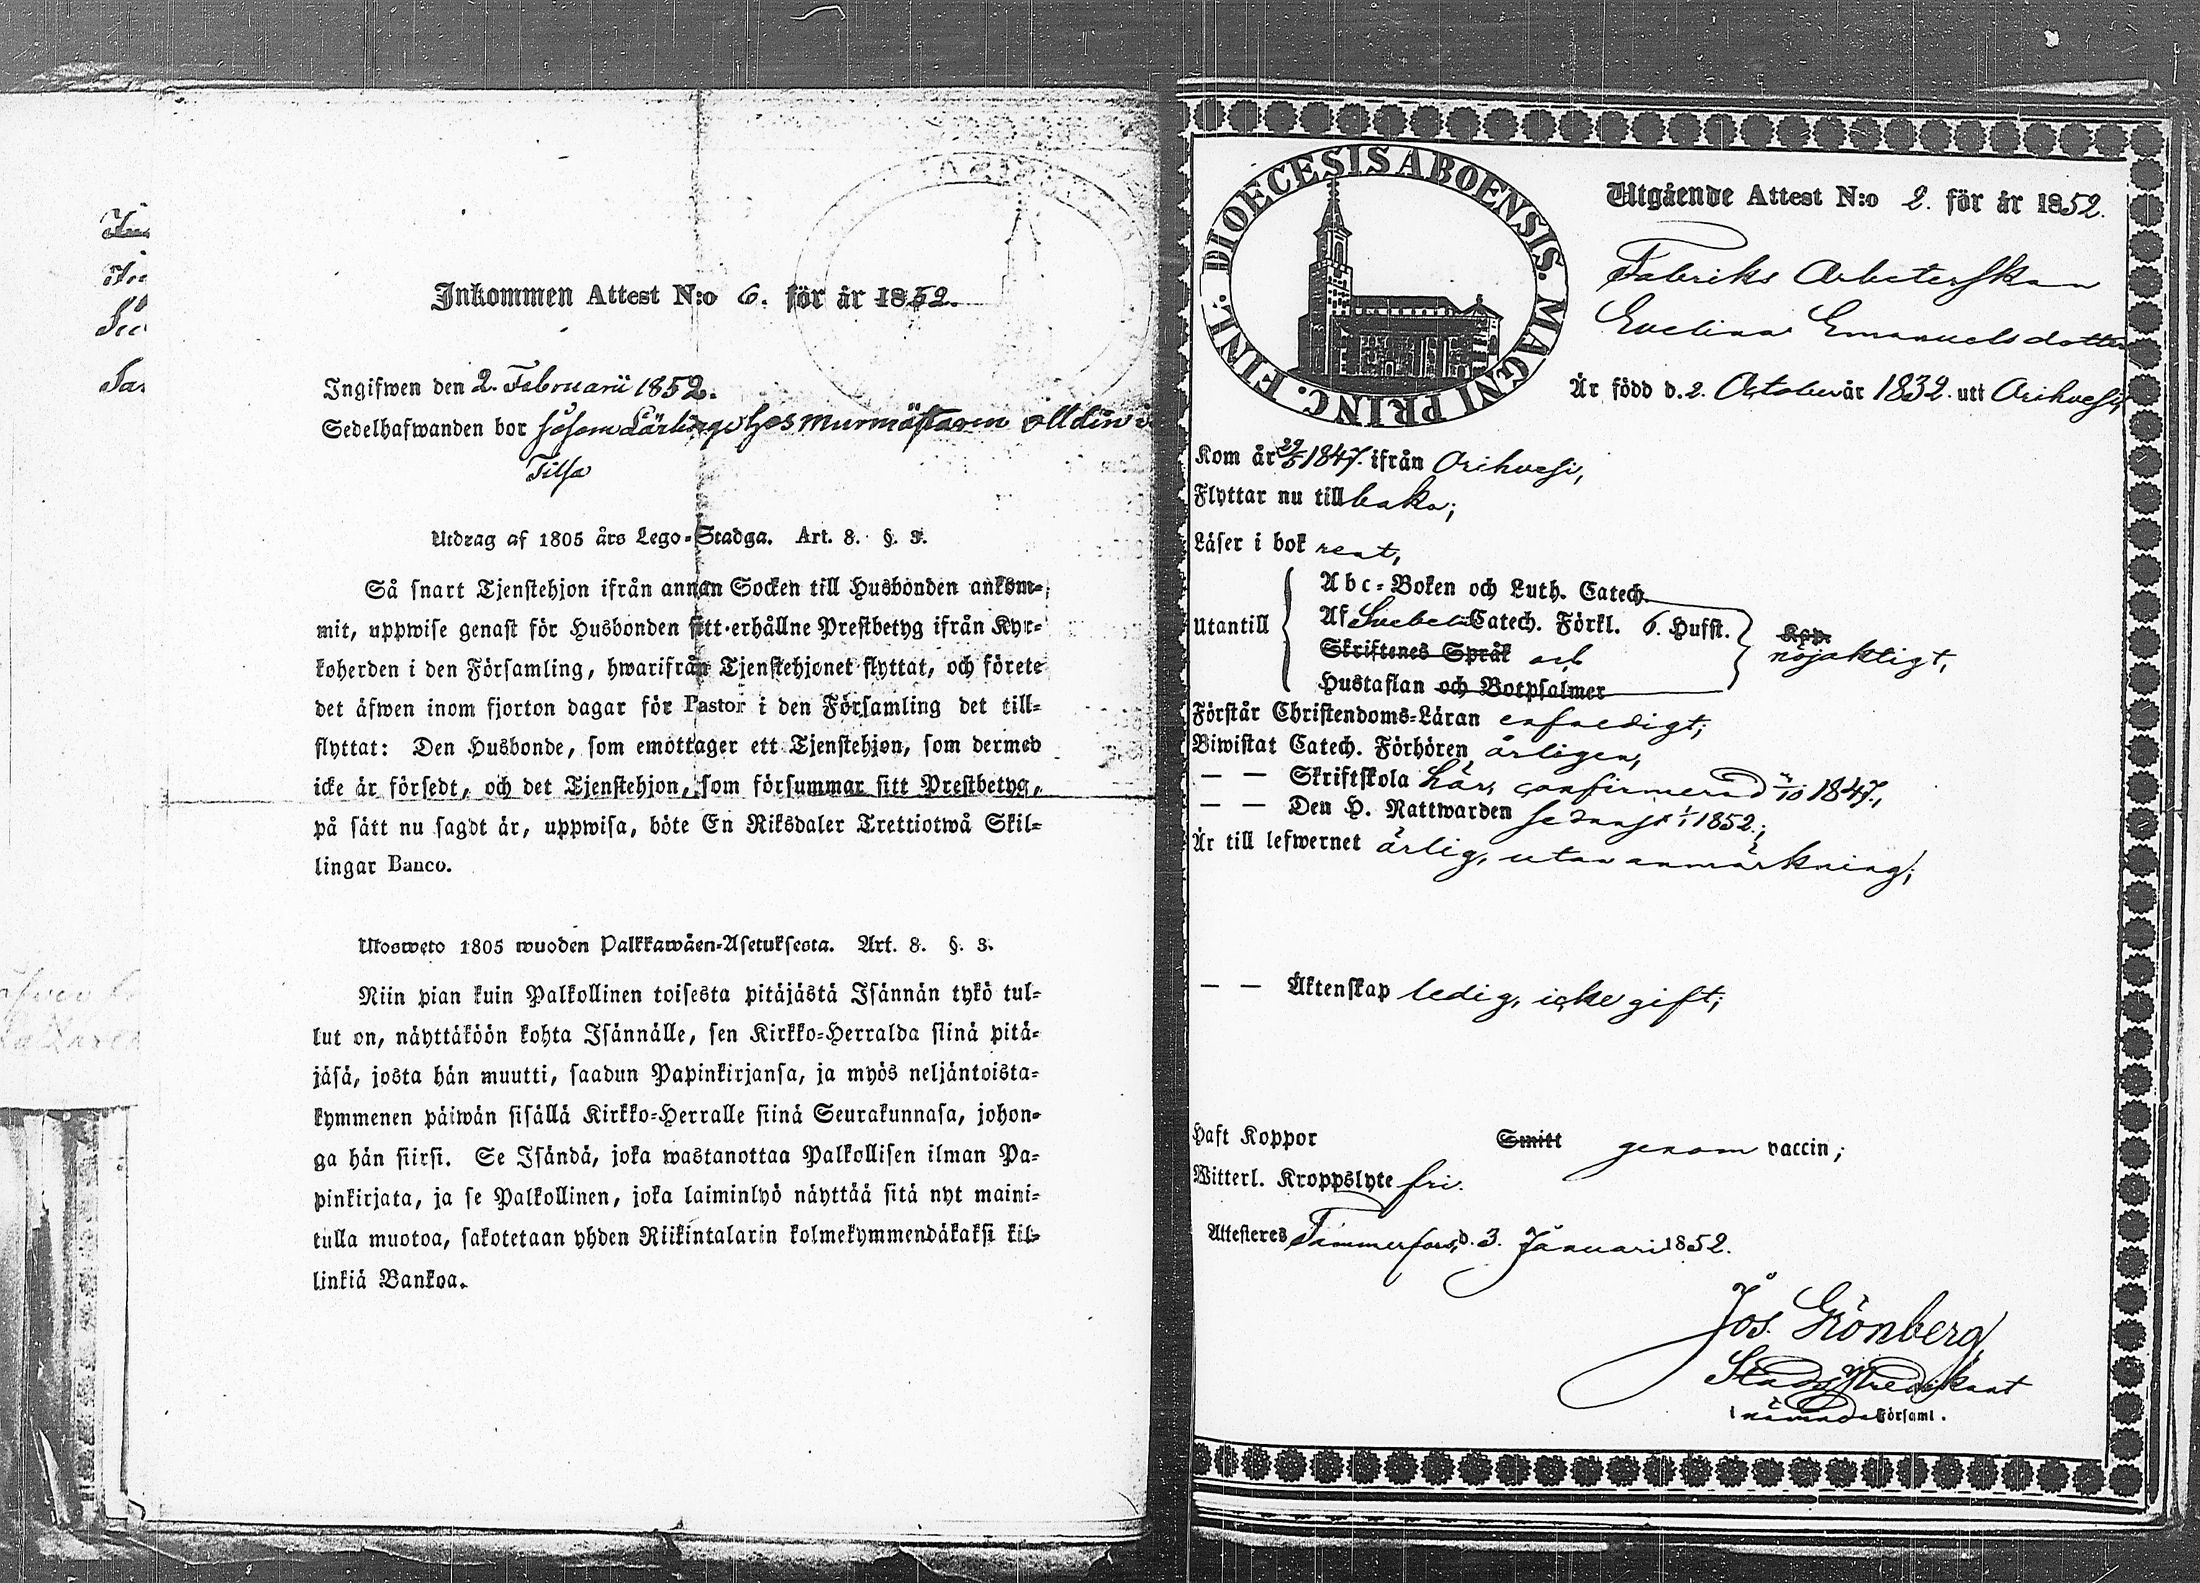 Inkommen Attest N:o 6. för år 1852.
Ingifwen den 2. Februarii 1852.
Sedelhafwanden bor såsom Lärling hos murmästaren
Utdrag af 1805 års Lego-Stadga. Art. 8. §. 3.
Så snart Tjenstehjon ifrån annan Socken till Husbonden ankom-
mit, uppwise genast för Husbonden sitt erhållne Prestbetyg ifrån Kyr-
koherden i den Församling, hwarifrån Tjenstehjonet flyttat, och förete
det äfwen inom fjorton dagar för Pastor i den Församling det till-
flyttat: Den Husbonde, som emottager ett Tjenstehjon, som dermed
icke är försedt, och det Tjenstehjon, som försummar sitt Prestbetyg,
på sätt nu sagdt är, uppwisa, böte En Riksdaler Trettiotwå Skil-
lingar Banco.
Ulosweto 1805 wuoden Palkkawäen-Asetuksesta. Art. 8. §. 3.
Niin pian kuin Palkollinen toisesta pitäjästä Isännän tykö tul-
lut on, näyttäköön kohta Isännälle, sen Kirkko-Herralda siinä pitä-
jäsä, josta hän muutti, saadun Papinkirjansa, ja myös neljäntoista-
kymmenen päiwän sisällä Kirkko-Herralle siinä Seurakunnasa, johon-
ga hän siirsi. Se Isändä, joka wastanottaa Palkollisen ilman Pa-
pinkirjata, ja se Palkollinen, joka laiminlyö näyttää sitä nyt maini-
tulla muotoa, sakotetaan yhden Riikintalarin kolmekymmendäkaksi kil-
linkiä Bankoa.
DIOECESIS ABOENSIS. MAGNI PRINC. FINL.
Utgående Attest N:o 2. för år 1852.
Fabriks Arbeterskan
Evelina Emanuelsdotter
Är född d. 2. October år 1832. uti Orihvesi,
Kom år 29/5 1847. ifrån Orihvesi,
Flyttar nu tillbaka;
Läser i bok rent,
Abc-Boken och Luth. Catech.
Utantill
Af Svebelii Catech. Förkl. 6. Hufst.
Skriftenes Språk och
nöjaktigt,
Hustaflan och Botpsalmer
Förstår Christendoms-Läran enfaldigt;
Biwistat Catech. Förhören årligen,
— — Skriftskola här, confirmerad 1847.,
— — Den H. Nattwarden sednast 1/1 1852.;
Är till lefwernet ärlig, utan anmärkning;
— — Äktenskap ledig, icke gift;
Haft Koppor Smitt genom vaccin;
Witterl. Kroppslyte fri.
Attesteres Tammerfors, d. 3. Januari 1852.
Jos. Grönberg
Stads Predikant
i nämnde Församl.